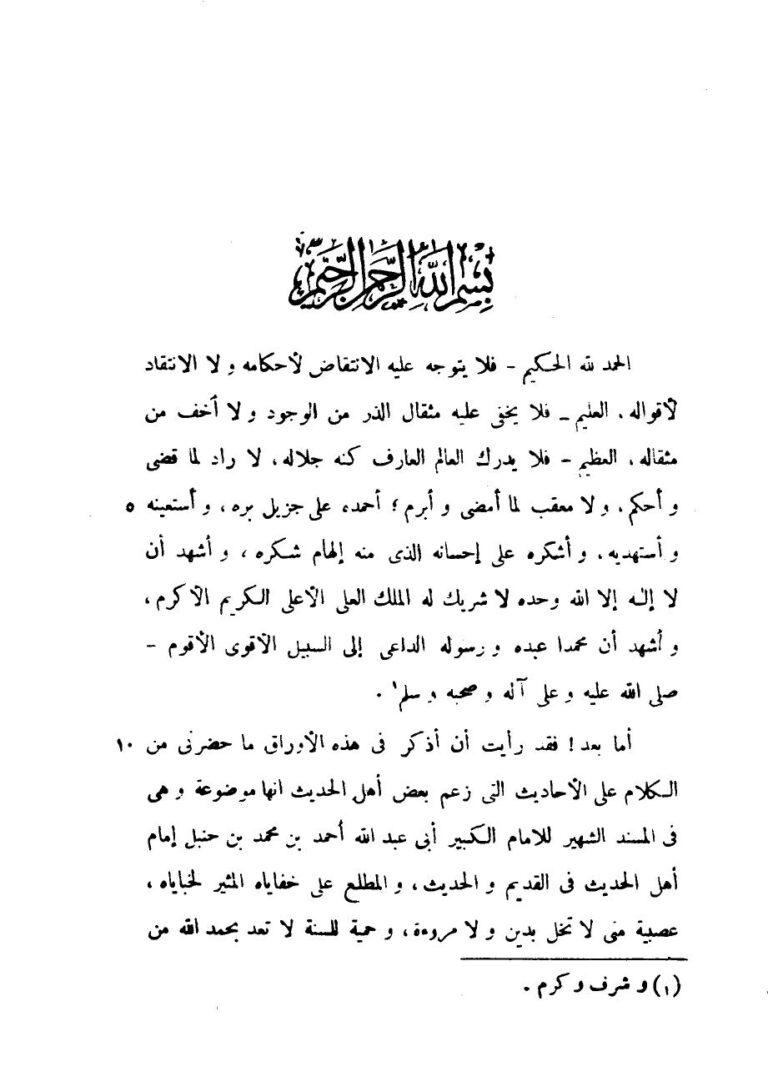 بسم الله الرحمن الرحيم
الحمد لله الحكيم - فلا يتوجه عليه الانتقاض لأحكامه و لا الانتقاد
لأقواله، العليم - فلا يخفى عليه مثقال الذر من الوجود و لا أخف من
مثقاله، العظيم - فلا يدرك العالم العارف كنه جلاله، لا راد لما قضى
و أحكم، و لا معقب لما أمضى و أبرم؛ أحمده على جزيل بره، و أستعينه ٥
و أستهديه، و أشكره على إحسانه الذى منه إلهام شكره، و أشهد أن
لا إله إلا الله وحده لا شريك له الملك العلى الأعلى الكريم الأكرم،
و أشهد أن محمدا عبده و رسوله الداعى إلى السبيل الأقوى الأقوم -
صلى الله عليه و على آله و صحبه و سلم١ .
أما بعد! فقد رأيت أن أذكر فى هذه الأوراق ما حضرنى من ١٠
الكلام على الأحاديث التى زعم بعض أهل الحديث انها موضوعة و هى
فى المسند الشهير للامام الكبير أبى عبد الله أحمد بن محمد بن حنبل إمام
أهل الحديث فى القديم و الحديث، و المطلع على خفاياه المثير لخباياه،
عصبية منى لا تخل بدين و لا مروءة، و حمية للسنة لا تعد بحمد الله من
(١) و شرف و كرم .